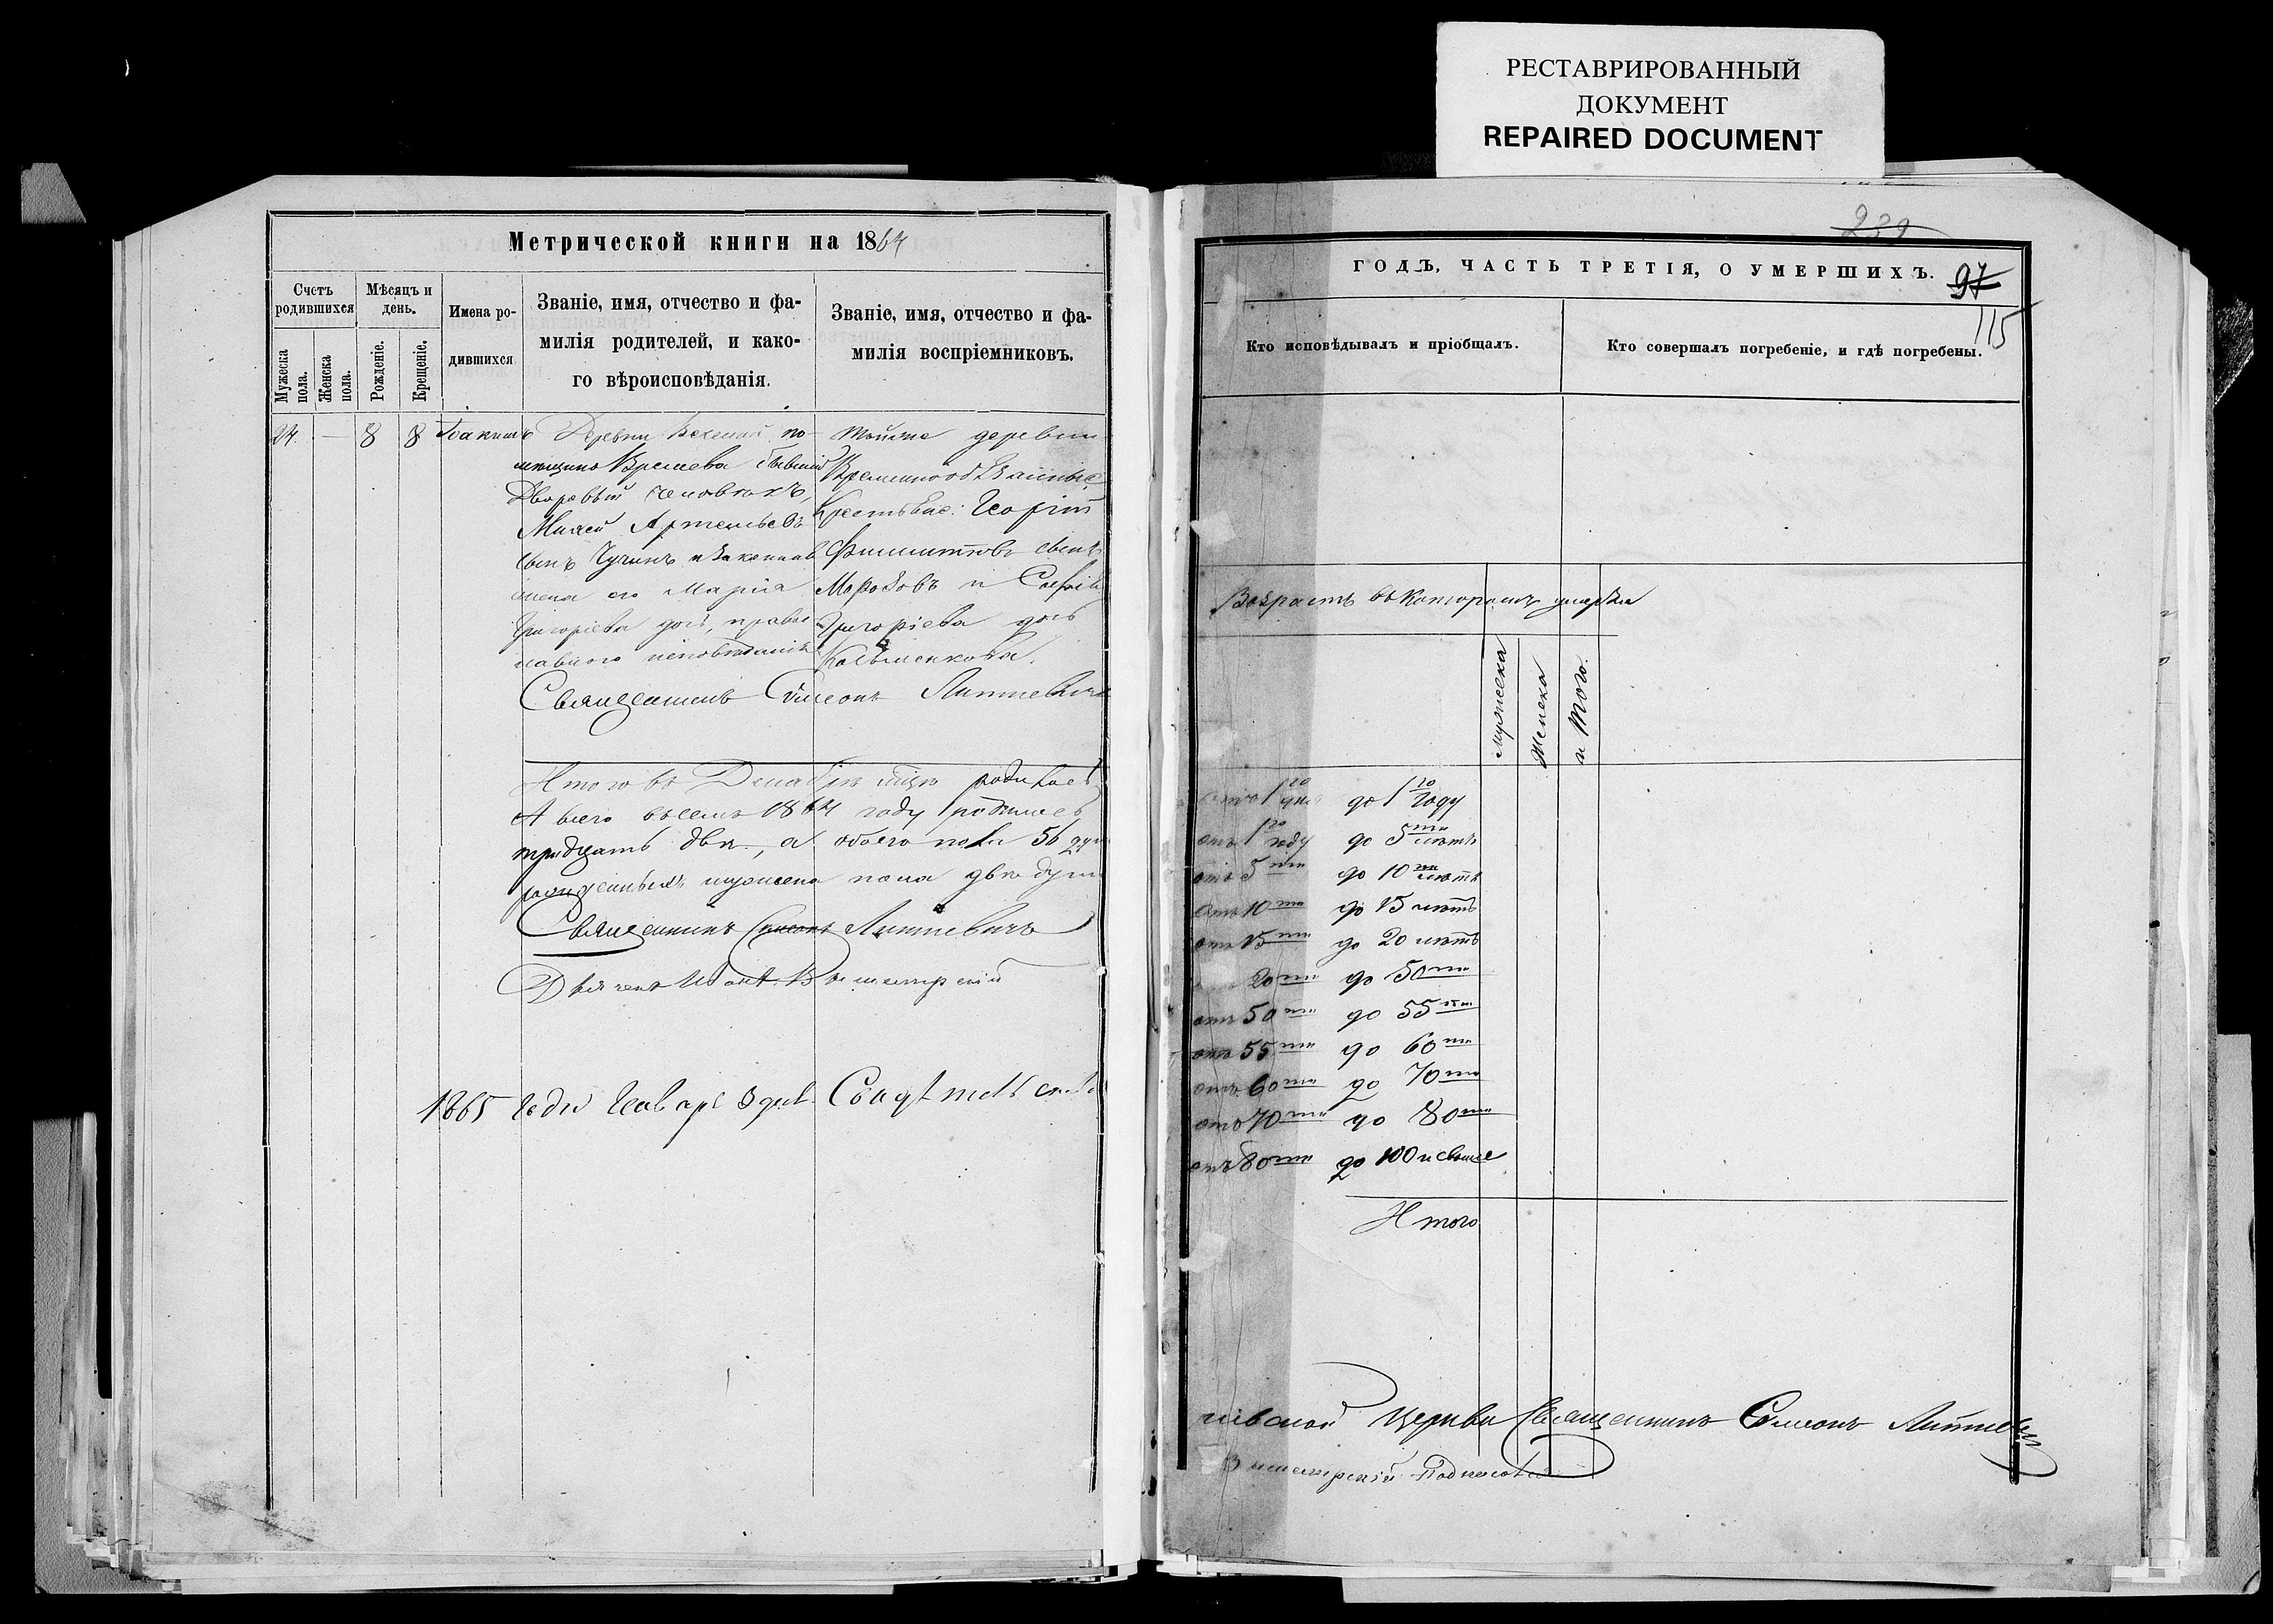 РЕСТАВРИРОВАННЫЙ
ДОКУМЕНТ
REPAIRED DOCUMENT
Метрической книги на 1864
Счетъ родившихся
Мужеска пола.
Женска пола.
Мѣсяцъ и день.
Рожденіе.
Крещеніе.
Имена родившихся
Званіе, имя, отчество и фа-
милія родителей, и како-
го вѣроисповѣданія.
Званіе, имя, отчество и фа-
милія воспріемниковъ.
24. — 8 8 Іоакимъ
Деревни по-
мещика бывшій
Дворовый человекъ,
Артемьевъ
сынъ и законная
жена его Марія
Григорієва дочь, правос
лавного исповѣданія
тойже деревни
Временнообязанные
Крестьяне: Георгій
Филипповъ сынъ
Морозовъ и Софія
Григорієва дочь
Священникъ Симеонъ Литневичъ
Итого въ Декабрѣ мцѣ родилось
А всего въ семъ 1864 году родилось
тридцать двѣ, а обоего пола 56 душ
рожденныхъ мужеска пола двѣ души
Священникъ Симеонъ Литневичъ
1865 года Генваря 8 дня
239
ГОДЪ, ЧАСТЬ ТРЕТІЯ, О УМЕРШИХЪ.
97
115
Кто исповѣдывалъ и пріобщалъ.
Кто совершалъ погребеніе, и гдѣ погребены.
Возрастъ въ которомъ умерли
мужеска
женска
и того.
отъ 1го дня до 1го году
отъ 1го году до 5ти лѣтъ
отъ 5ти до 10ти лѣтъ
отъ 10ти до 15 лѣтъ
отъ 15ти до 20 лѣтъ
20ти до 50ти
отъ 50ти до 55ти
отъ 55ти до 60ти
отъ 60ти до 70ти
отъ 70ти до 80ти
отъ 80ти до 100 и свыше
Итого
Церкви Священникъ Симеонъ Литневичъ